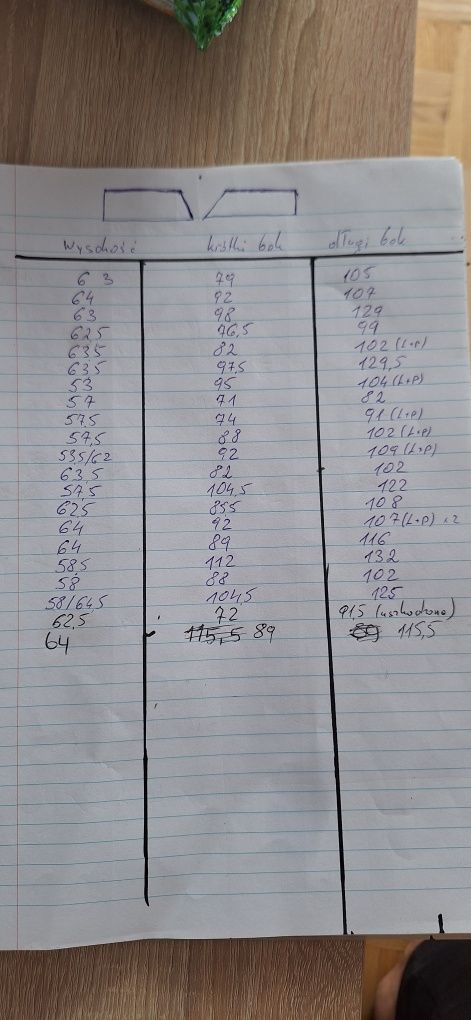 Wysokość krótki bok długi bok
63 79 105
64 92 107
63 98 129
62,5 76,5 99
63,5 82 102 (L+P)
63,5 97,5 129,5
53 95 104 (L+P)
57 71 82
57,5 74 91 (L+P)
57,5 88 102 (L+P)
53,5/62 92 109 (L+P)
63,5 82 102
57,5 104,5 122
62,5 85,5 108
64 92 107 (L+P) x2
64 89 116
58,5 112 132
58 88 102
58/64,5 104,5 125
62,5 72 91,5 (uszkodzone)
64 115,5 89 89 115,5